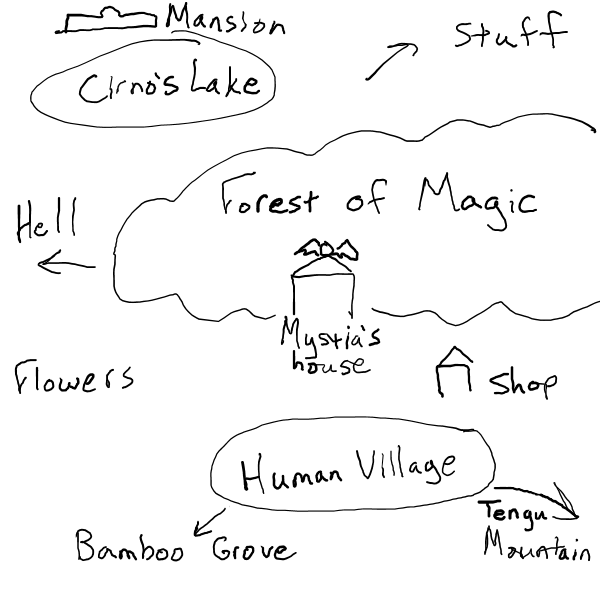 Mansion
Stuff
Cirno's Lake
Forest of Magic
Hell
Mystia's
house
Flowers
Shop
Human Village
Tengu
Mountain
Bamboo Grove